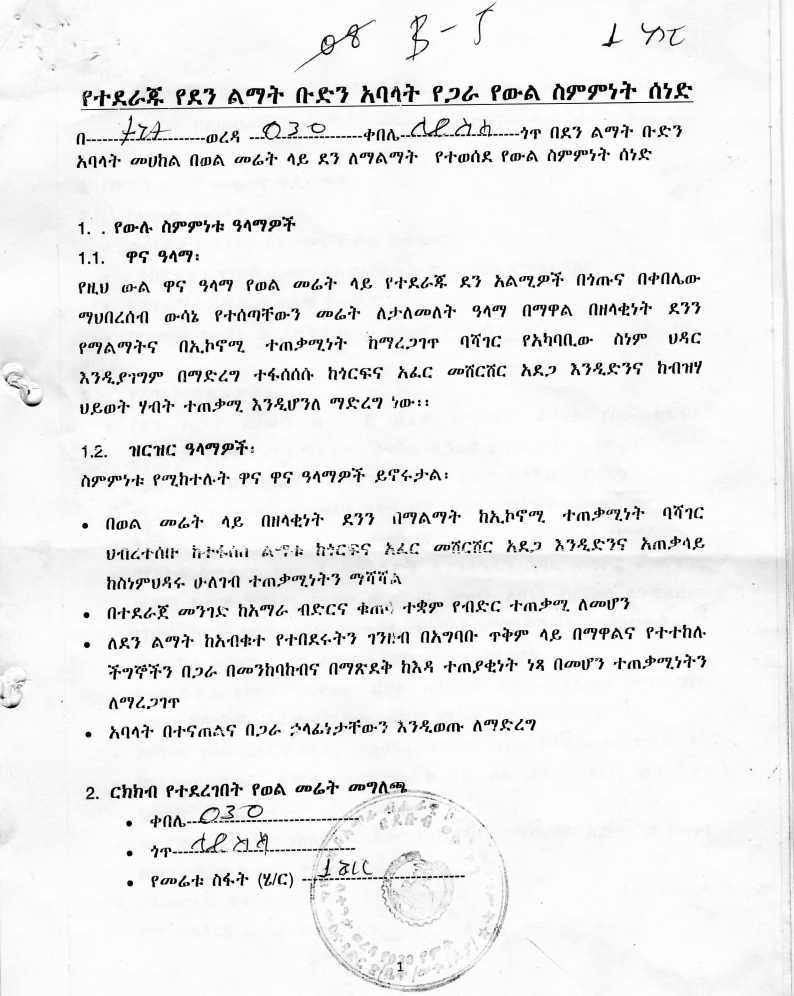 08 B-5 1 ሃር
የተደራጁ የደን ልማት ቡድን አባላት የጋራ የውል ስምምነት ሰነድ
በ--------------------ወረዳ ---030-----------------ቀበሌ-------------------ጎጥ በደን ልማት ቡድን
አባላት መሀከል በወል መሬት ላይ ደን ለማልማት የተወሰደ የውል ስምምነት ሰነድ
1. . የውሉ ስምምነቱ ዓላማዎች
1.1. ዋና ዓላማ፡
የዚህ ውል ዋና ዓላማ የወል መሬት ላይ የተደራጁ ደን አልሚዎች በጎጡና በቀበሌው
ማህበረሰብ ውሳኔ የተሰጣቸውን መሬት ለታለመለት ዓላማ በማዋል በዘላቂነት ደንን
የማልማትና በኢኮኖሚ ተጠቃሚነት ከማረጋገጥ ባሻገር የአካባቢው ስነም ህዳር
እንዲያገግም በማድረግ ተፋሰሰሱ ከጎርፍና አፈር መሸርሸር አደጋ እንዲድንና ከብዝሃ
ህይወት ሃብት ተጠቃሚ እንዲሆንለ ማድረግ ነው፡፡
1.2. ዝርዝር ዓላማዎች፡
ስምምነቱ የሚከተሉት ዋና ዋና ዓላማዎች ይኖሩታል፡
• በወል መሬት ላይ በዘላቂነት ደንን በማልማት ከኢኮኖሚ ተጠቃሚነት ባሻገር
ህብረተሰቡ ከተፋሰስ ልማቱ ከጎርፍና አፈር መሸርሸር አደጋ እንዲድንና አጠቃላይ
ከስነምህዳሩ ሁለገብ ተጠቃሚነትን ማሻሻል
• በተደራጀ መንገድ ከአማራ ብድርና ቁጠባ ተቋም የብድር ተጠቃሚ ለመሆን
• ለደን ልማት ከአብቁተ የተበደሩትን ገንዘብ በአግባቡ ጥቅም ላይ በማዋልና የተተከሉ
ችግኞችን በጋራ በመንከባከብና በማጽደቅ ከእዳ ተጠያቂነት ነጻ በመሆን ተጠቃሚነትን
ለማረጋገጥ
• አባላት በተናጠልና በጋራ ኃላፊነታቸውን እንዲወጡ ለማድረግ
2. ርክክብ የተደረገበት የወል መሬት መግለጫ
• ቀበሌ--030-----------------------
• ጎጥ------------------------------
• የመሬቱ ስፋት (ሄ/ር) ---------------------------
1